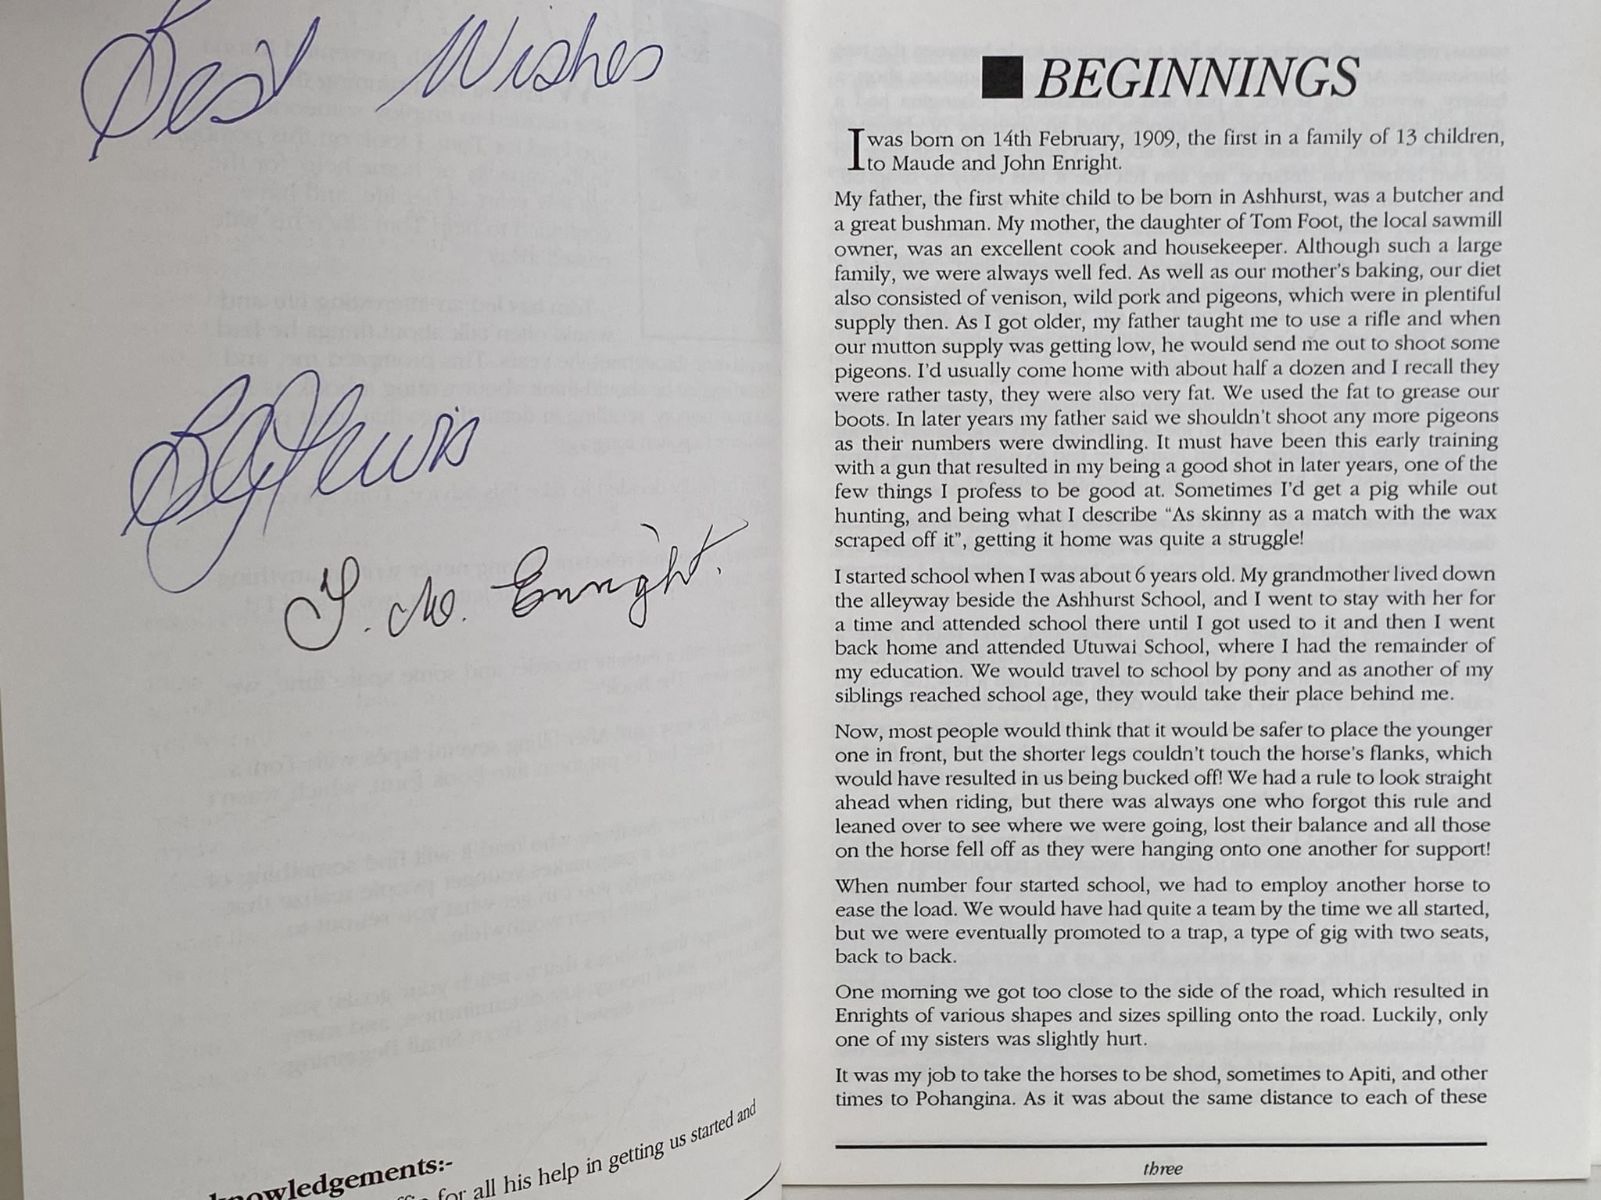 Best Wishes
Lewis
Enright.
knowledgements:-
for all his help in getting us started and
BEGINNINGS
I was born on 14th February, 1909, the first in a family of 13 children,
to Maude and John Enright.
My father, the first white child to be born in Ashhurst, was a butcher and
a great bushman. My mother, the daughter of Tom Foot, the local sawmill
owner, was an excellent cook and housekeeper. Although such a large
family, we were always well fed. As well as our mother's baking, our diet
also consisted of venison, wild pork and pigeons, which were in plentiful
supply then. As I got older, my father taught me to use a rifle and when
our mutton supply was getting low, he would send me out to shoot some
pigeons. I'd usually come home with about half a dozen and I recall they
were rather tasty, they were also very fat. We used the fat to grease our
boots. In later years my father said we shouldn't shoot any more pigeons
as their numbers were dwindling. It must have been this early training
with a gun that resulted in my being a good shot in later years, one of the
few things I profess to be good at. Sometimes I'd get a pig while out
hunting, and being what I describe "As skinny as a match with the wax
scraped off it", getting it home was quite a struggle!
I started school when I was about 6 years old. My grandmother lived down
the alleyway beside the Ashhurst School, and I went to stay with her for
a time and attended school there until I got used to it and then I went
back home and attended Utuwai School, where I had the remainder of
my education. We would travel to school by pony and as another of my
siblings reached school age, they would take their place behind me.
Now, most people would think that it would be safer to place the younger
one in front, but the shorter legs couldn't touch the horse's flanks, which
would have resulted in us being bucked off! We had a rule to look straight
ahead when riding, but there was always one who forgot this rule and
leaned over to see where we were going, lost their balance and all those
on the horse fell off as they were hanging onto one another for support!
When number four started school, we had to employ another horse to
ease the load. We would have had quite a team by the time we all started,
but we were eventually promoted to a trap, a type of gig with two seats,
back to back.
One morning we got too close to the side of the road, which resulted in
Enrights of various shapes and sizes spilling onto the road. Luckily, only
one of my sisters was slightly hurt.
It was my job to take the horses to be shod, sometimes to Apiti, and other
times to Pohangina. As it was about the same distance to each of these
three